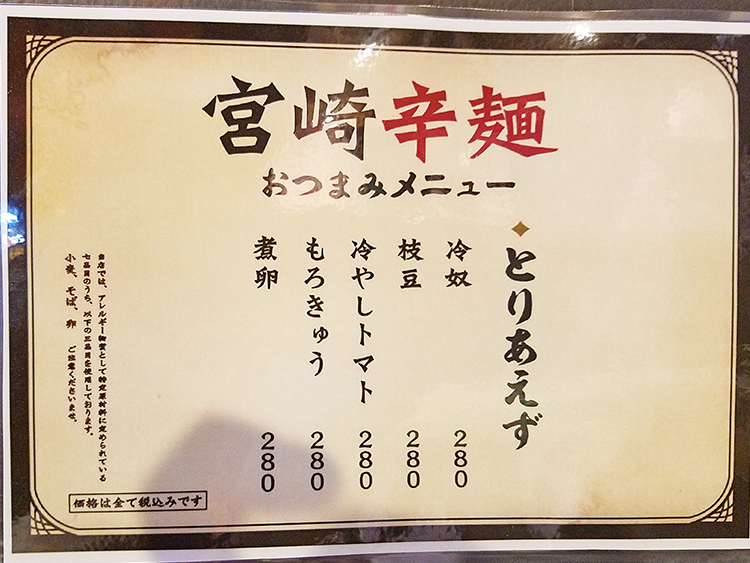 宮崎辛麺
おつまみメニュー
とりあえず
冷奴 280
枝豆 280
冷やしトマト 280
もろきゅう 280
煮卵 280
当店では、アレルギー物質として特定原材料に定められている
七品目のうち、以下の三品目を使用しております。
小麦、そば、卵 ご注意くださいませ。
価格は全て税込みです